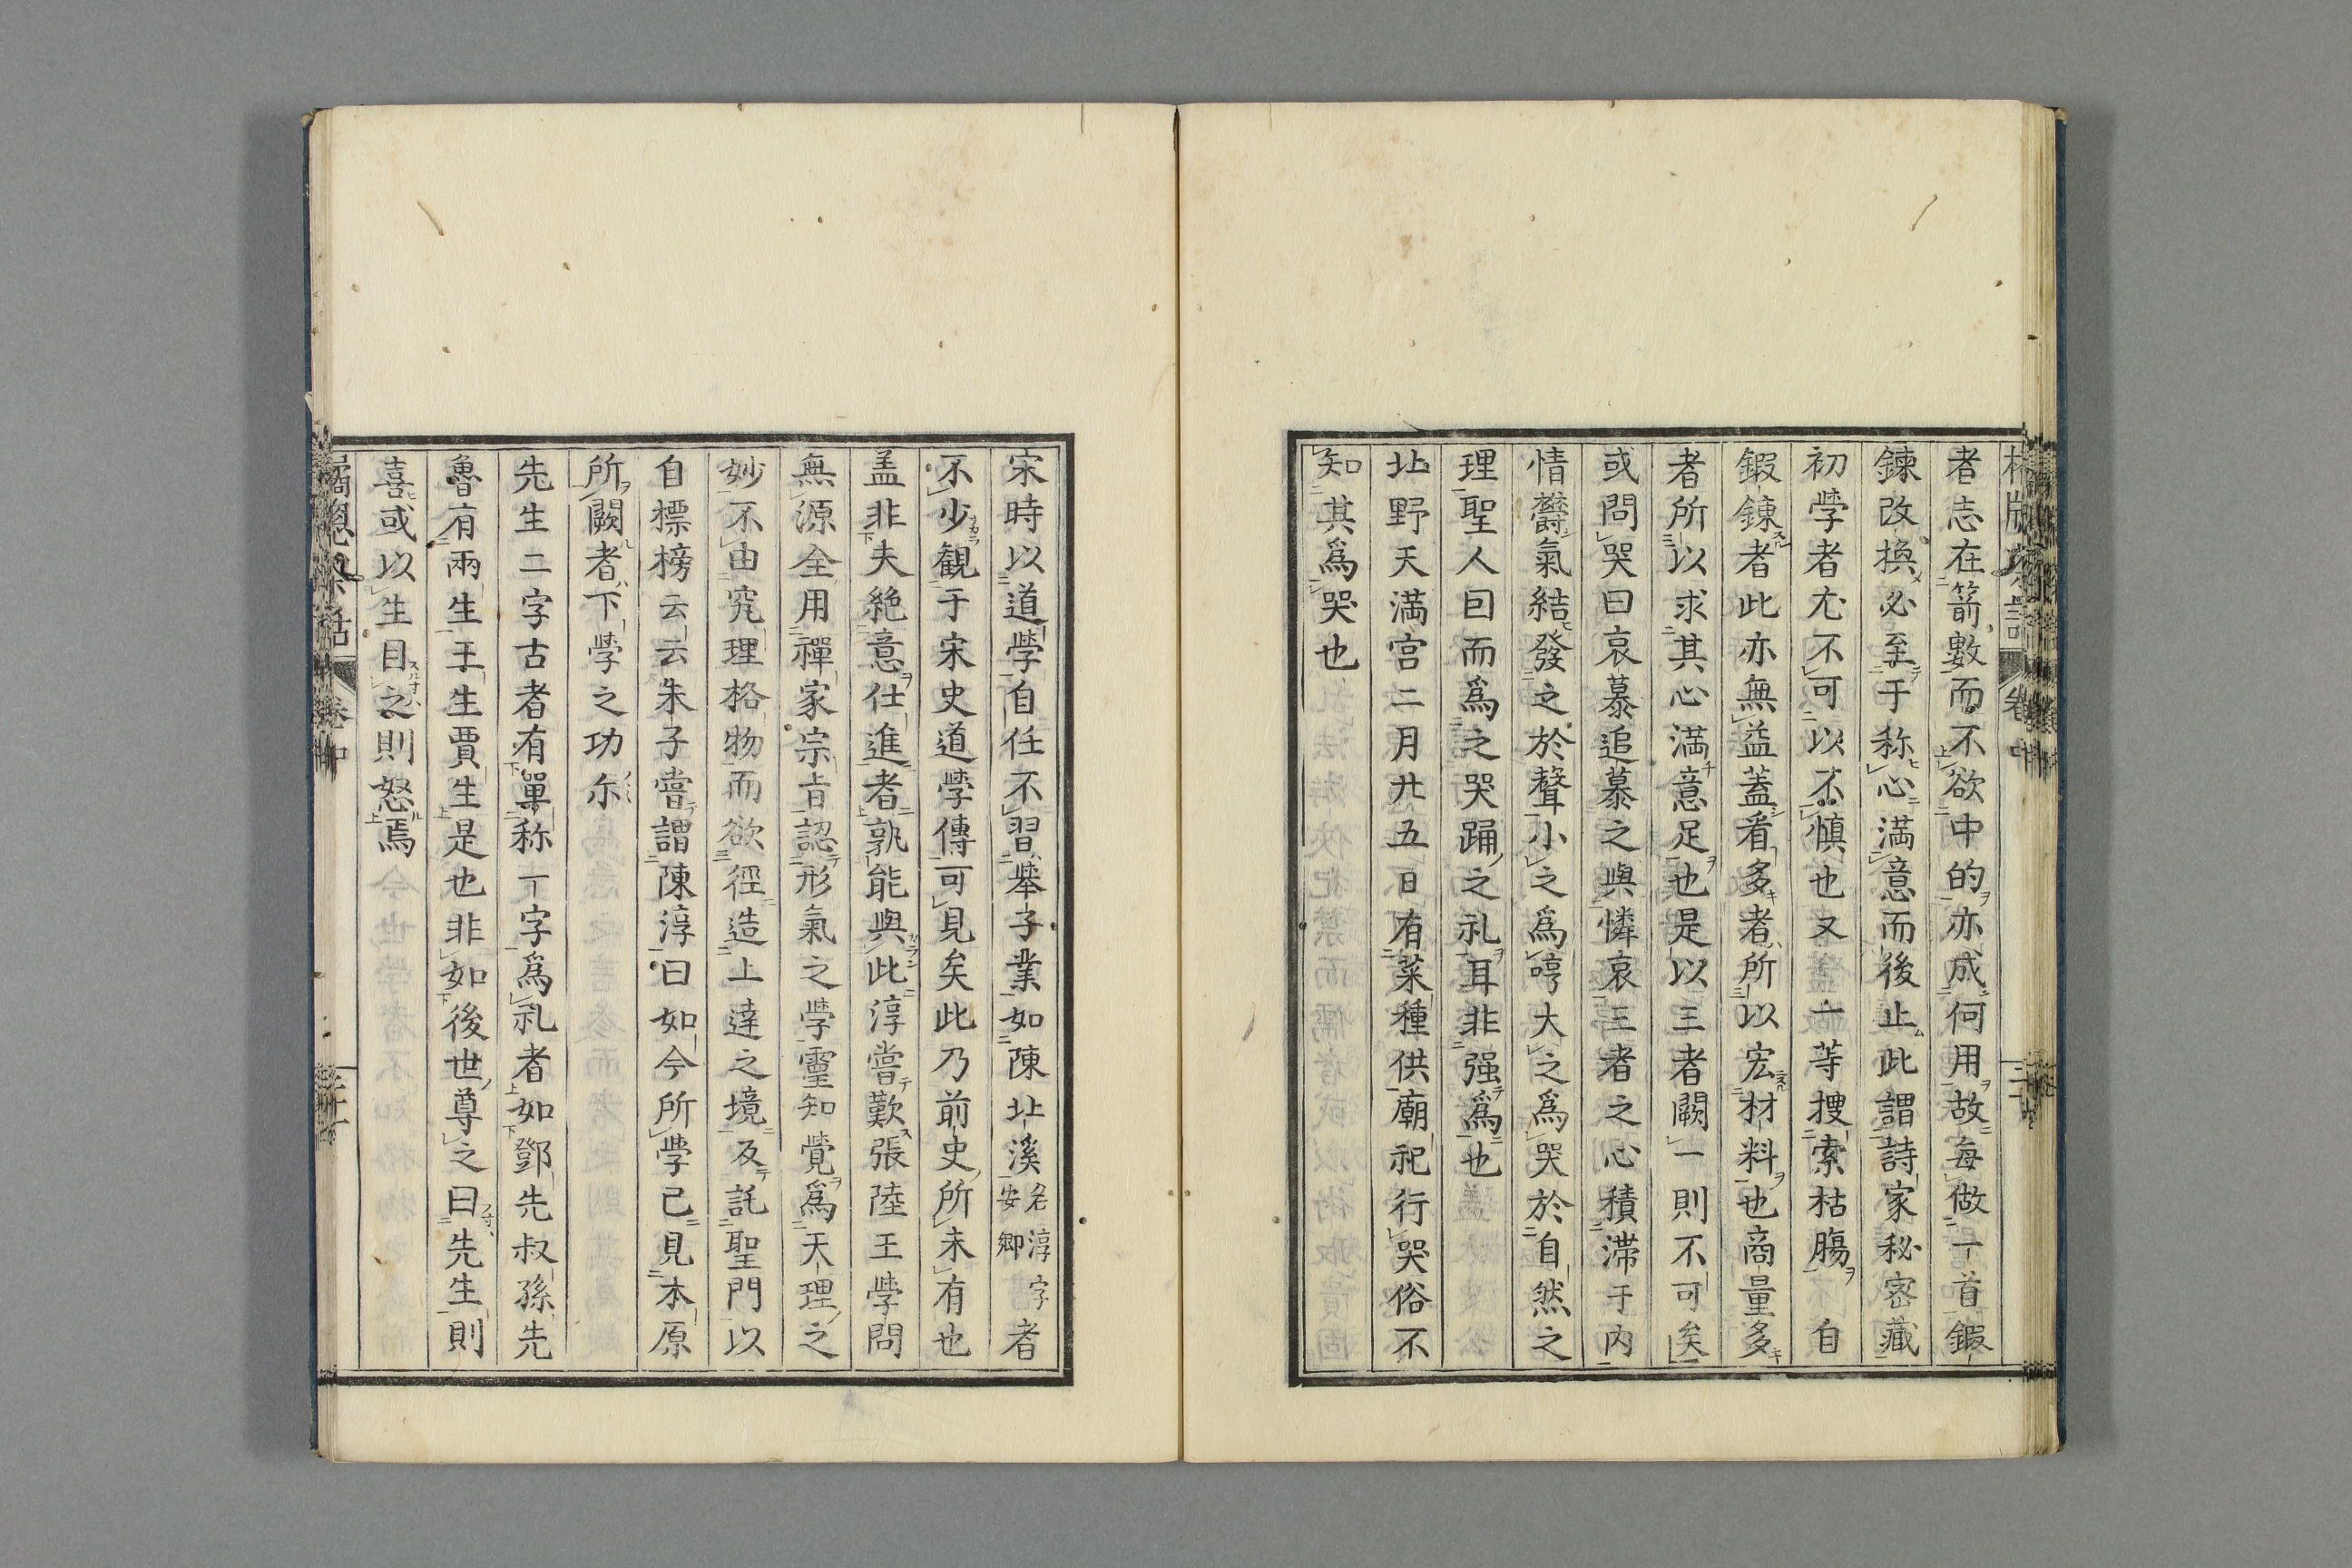 者志在箭數而不欲中的亦成何用故每做一首鍜
鍊改換必至于称心満意而後止此謂詩家秘密藏
初學者尤不可以不愼也又一等捜索枯膓自
鍜鍊者此亦無益蓋看多者所以宏材料也商量多
者所以求其心満意足也是以三者闕一則不可矣
或問哭曰哀慕追慕之與憐哀三者之心積滞于内
情欝氣結發之於聲小之為哼大之為哭於自然之
理聖人囙而爲之哭踊之礼耳非强爲也
北野天満宮二月廾五日有菜種供廟祀行哭俗不
知其爲哭也
宋時以道學自任不習舉子業如陳北溪名淳字安卿者
不少観于宋史道學傳可見矣此乃前史所未有也
盖非夫絶意仕進者孰能與此淳嘗歎張陸王學問
無源全用禪家宗㫖認形氣之學霊知覺爲天理之
妙不由究理格物而欲徑造上達之境及託聖門以
自標榜云云朱子嘗謂陳淳曰如今所學已見本原
所闕者下學之功尓
先生二字古者有單称一字爲礼者如鄧先叔孫先
魯有兩生王生賈生是也非如後世尊之曰先生則
喜或以生目之則怒焉